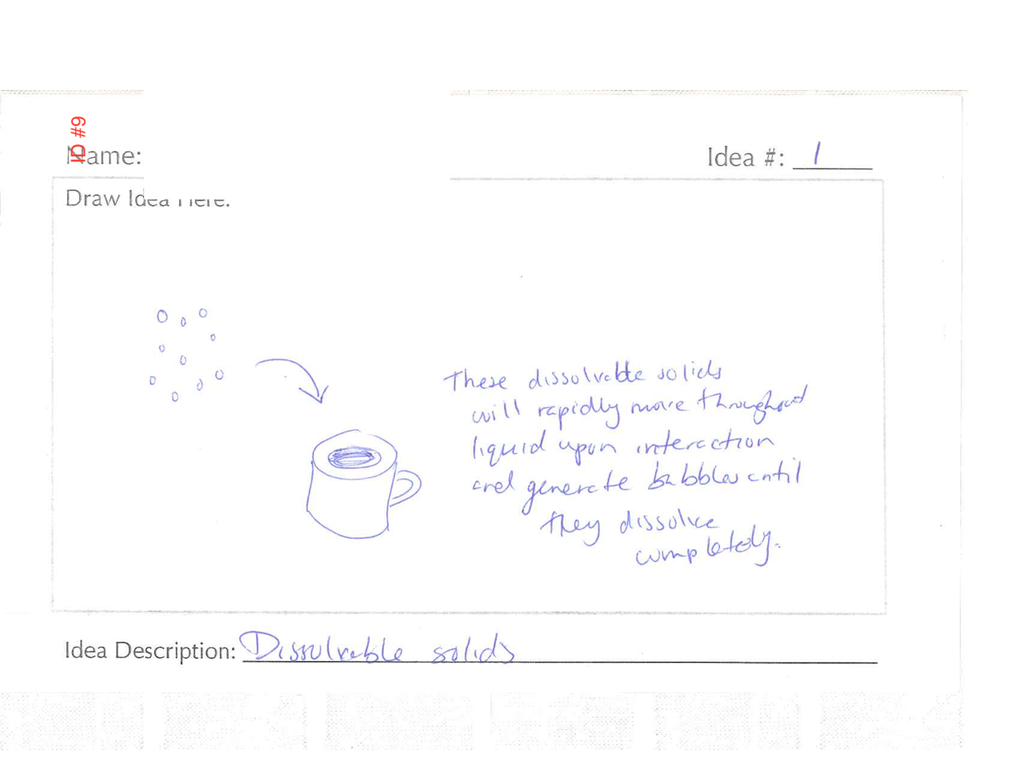 ID #9
Name:
Idea #: 1
Draw Idea Here.
These dissolvable solids
will rapidly move throughout
liquid upon interaction
and generate bubbles until
they dissolve
completely.
Idea Description: Dissolvable solids